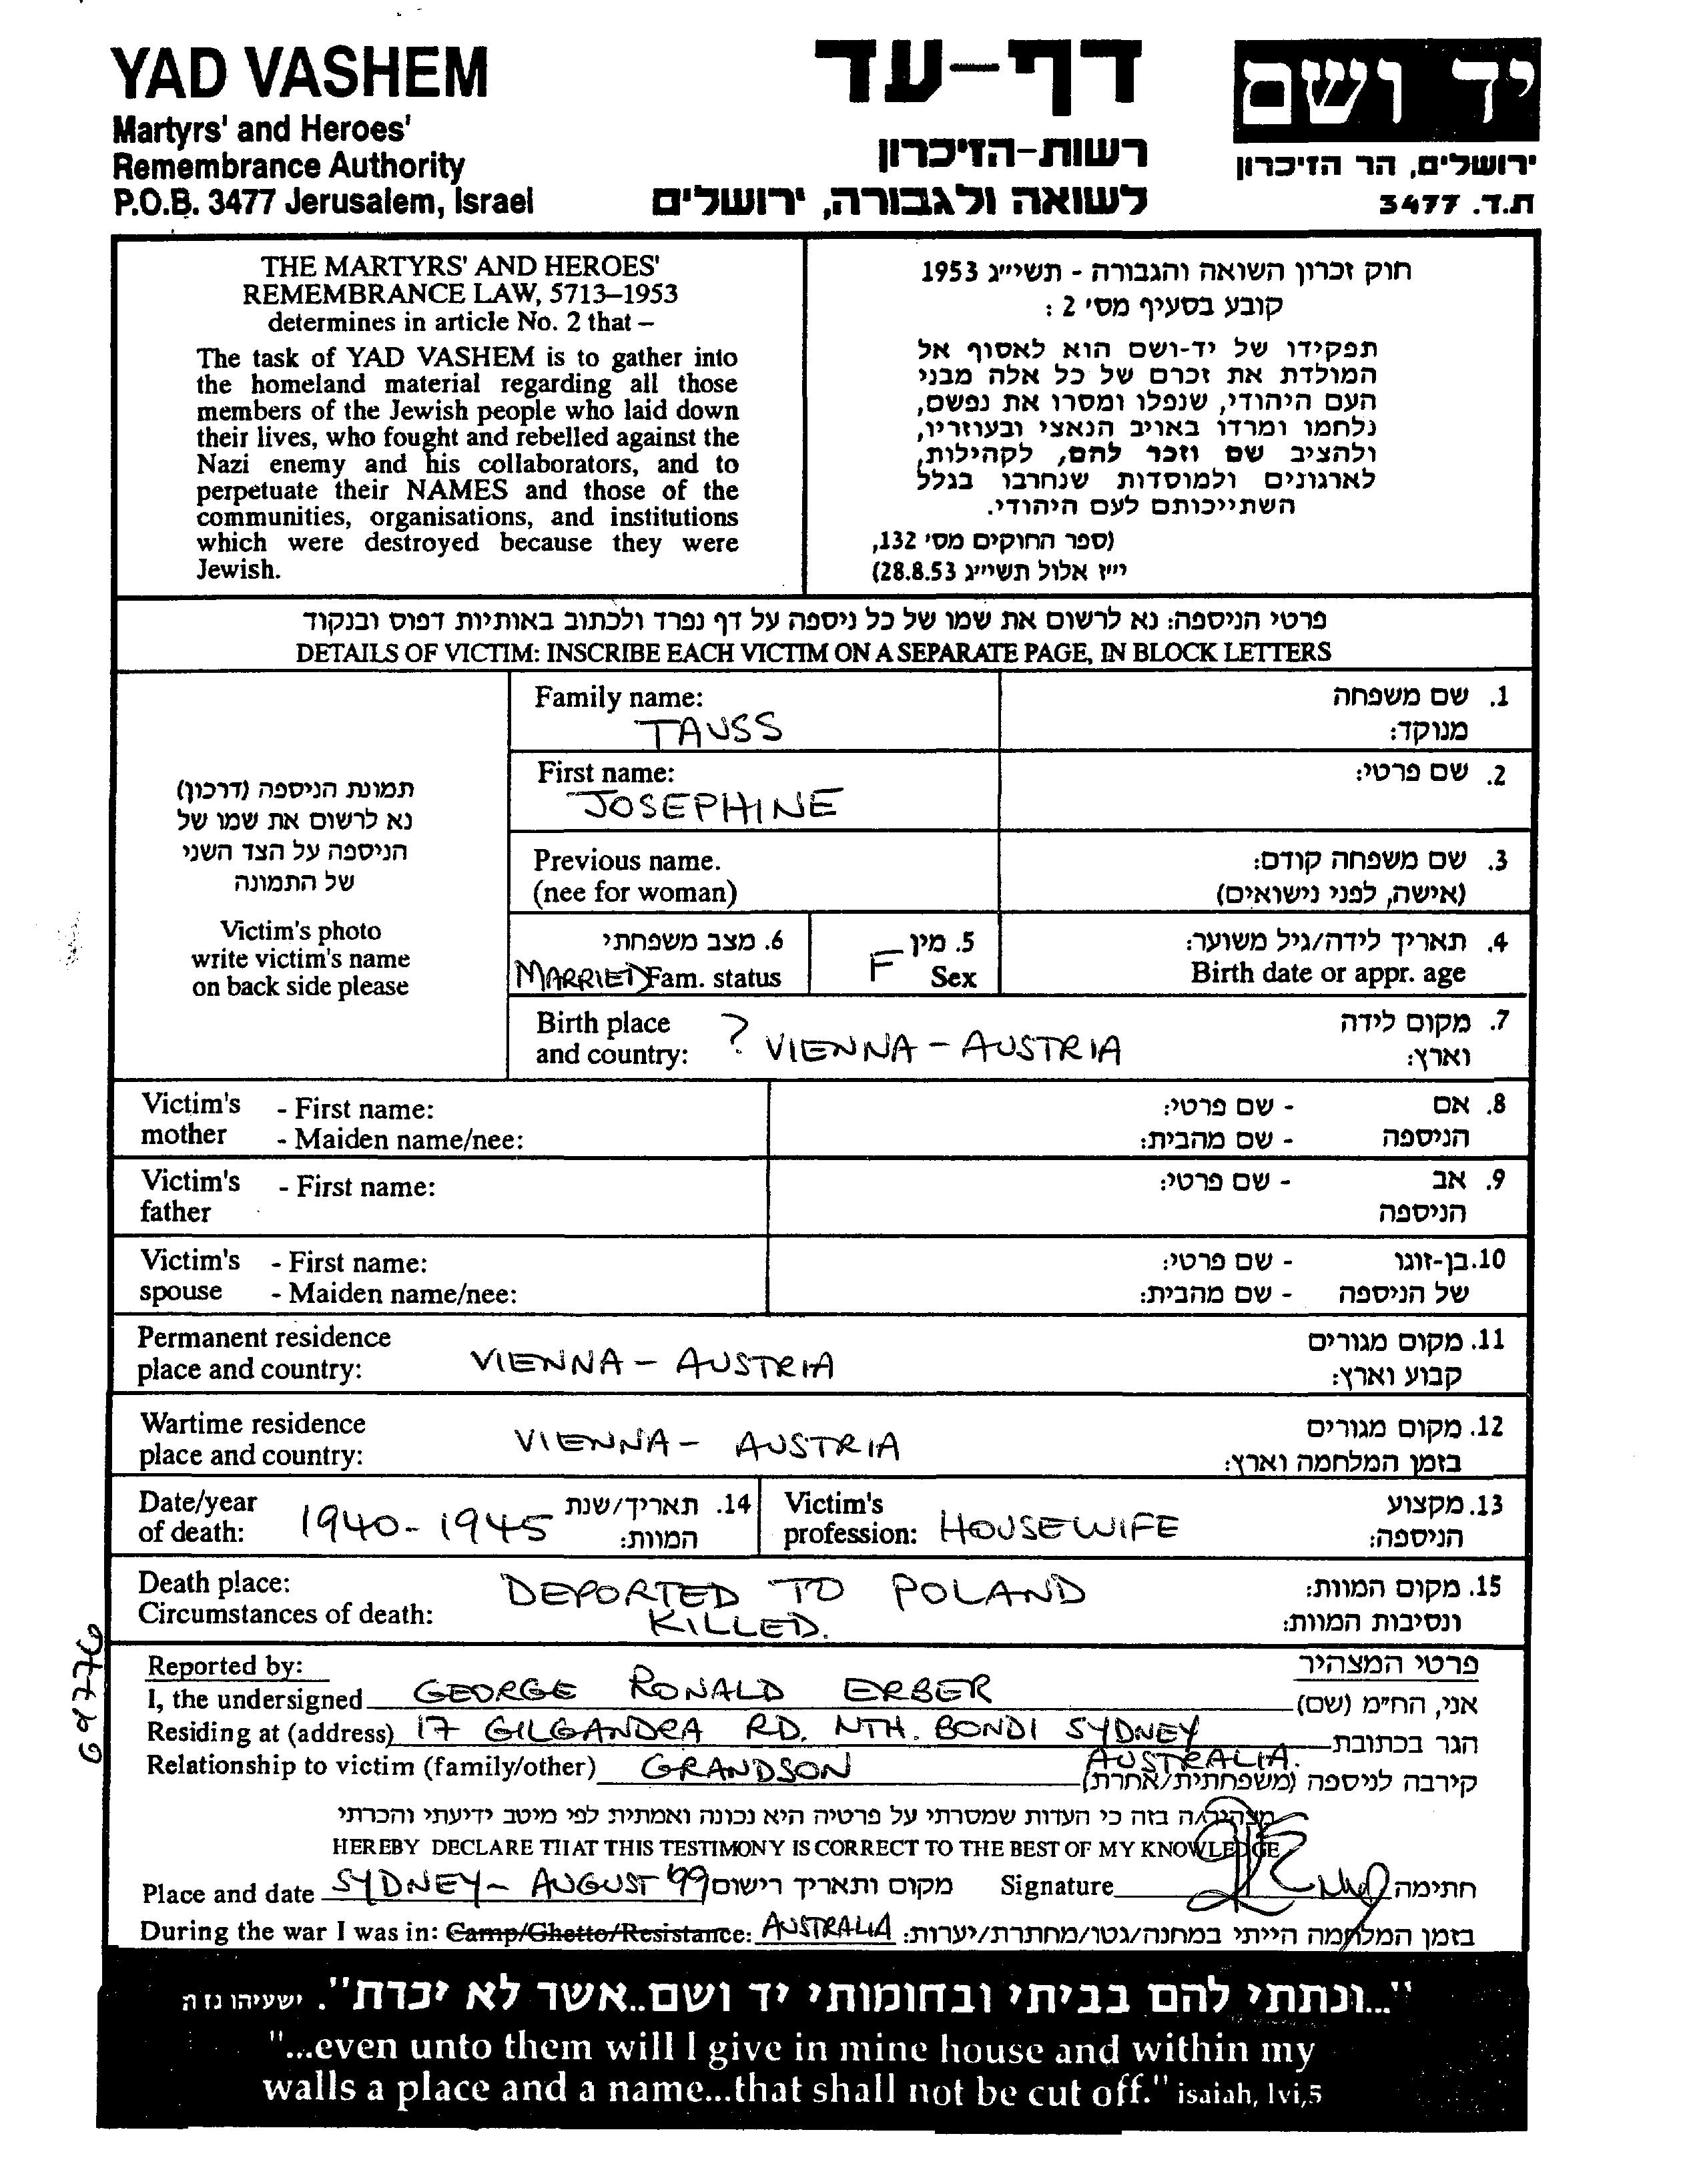 YAD VASHEM
Martyrs' and Heroes'
Remembrance Authority
P.O.B. 3477 Jerusalem, Israel
דף-עד
רשות-הזיכרון
לשואה ולגבורה, ירושלים
יד ושם
ירושלים, הר הזיכרון
ת.ד. 3477
THE MARTYRS' AND HEROES'
REMEMBRANCE LAW, 5713–1953
determines in article No. 2 that –
The task of YAD VASHEM is to gather into
the homeland material regarding all those
members of the Jewish people who laid down
their lives, who fought and rebelled against the
Nazi enemy and his collaborators, and to
perpetuate their NAMES and those of the
communities, organisations, and institutions
which were destroyed because they were
Jewish.
חוק זכרון השואה והגבורה - תשי״ג 1953
קובע בסעיף מס׳ 2 :
תפקידו של יד-ושם הוא לאסוף אל
המולדת את זכרם של כל אלה מבני
העם היהודי, שנפלו ומסרו את נפשם,
נלחמו ומרדו באויב הנאצי ובעוזריו,
ולהציב שם וזכר להם, לקהילות,
לארגונים ולמוסדות שנחרבו בגלל
השתייכותם לעם היהודי.
(ספר החוקים מס׳ 132,
י״ז אלול תשי״ג 28.8.53)
פרטי הניספה: נא לרשום את שמו של כל ניספה על דף נפרד ולכתוב באותיות דפוס ובנקוד
DETAILS OF VICTIM: INSCRIBE EACH VICTIM ON A SEPARATE PAGE, IN BLOCK LETTERS
תמונת הניספה (דרכון)
נא לרשום את שמו של
הניספה על הצד השני
של התמונה
Victim's photo
write victim's name
on back side please
Family name:
TAUSS
1. שם משפחה
מנוקד:
First name:
JOSEPHINE
2. שם פרטי:
Previous name.
(nee for woman)
3. שם משפחה קודם:
(אישה, לפני נישואים)
6. מצב משפחתי
MARRIED Fam. status
5. מין
F Sex
4. תאריך לידה/גיל משוער:
Birth date or appr. age
Birth place
and country: ? VIENNA - AUSTRIA
7. מקום לידה
וארץ:
Victim's - First name:
mother - Maiden name/nee:
8. אם - שם פרטי:
הניספה - שם מהבית:
Victim's - First name:
father
9. אב - שם פרטי:
הניספה
Victim's - First name:
spouse - Maiden name/nee:
10. בן-זוגו - שם פרטי:
של הניספה - שם מהבית:
Permanent residence
place and country: VIENNA - AUSTRIA
11. מקום מגורים
קבוע וארץ:
Wartime residence
place and country: VIENNA - AUSTRIA
12. מקום מגורים
בזמן המלחמה וארץ:
Date/year
of death: 1940-1945
14. תאריך/שנת
המוות:
Victim's
profession: HOUSEWIFE
13. מקצוע
הניספה:
Death place:
Circumstances of death:
DEPORTED TO POLAND
KILLED.
15. מקום המוות:
ונסיבות המוות:
69776
Reported by:
פרטי המצהיר
I, the undersigned GEORGE RONALD ERBER אני, הח״מ (שם)
Residing at (address) 17 GILGANDRA RD. NTH. BONDI SYDNEY הגר בכתובת
AUSTRALIA.
Relationship to victim (family/other) GRANDSON קירבה לניספה (משפחתית/אחרת)
מצהיר/ה בזה כי העדות שמסרתי על פרטיה היא נכונה ואמתית לפי מיטב ידיעתי והכרתי
HEREBY DECLARE THAT THIS TESTIMONY IS CORRECT TO THE BEST OF MY KNOWLEDGE
Place and date SYDNEY - AUGUST '99 מקום ותאריך רישום Signature חתימה
During the war I was in: Camp/Ghetto/Resistance: AUSTRALIA בזמן המלחמה הייתי במחנה/גטו/מחתרת/יערות:
"...ונתתי להם בביתי ובחומותי יד ושם..אשר לא יכרת". ישעיהו נז ה
"...even unto them will I give in mine house and within my
walls a place and a name...that shall not be cut off." isaiah, lvi,5